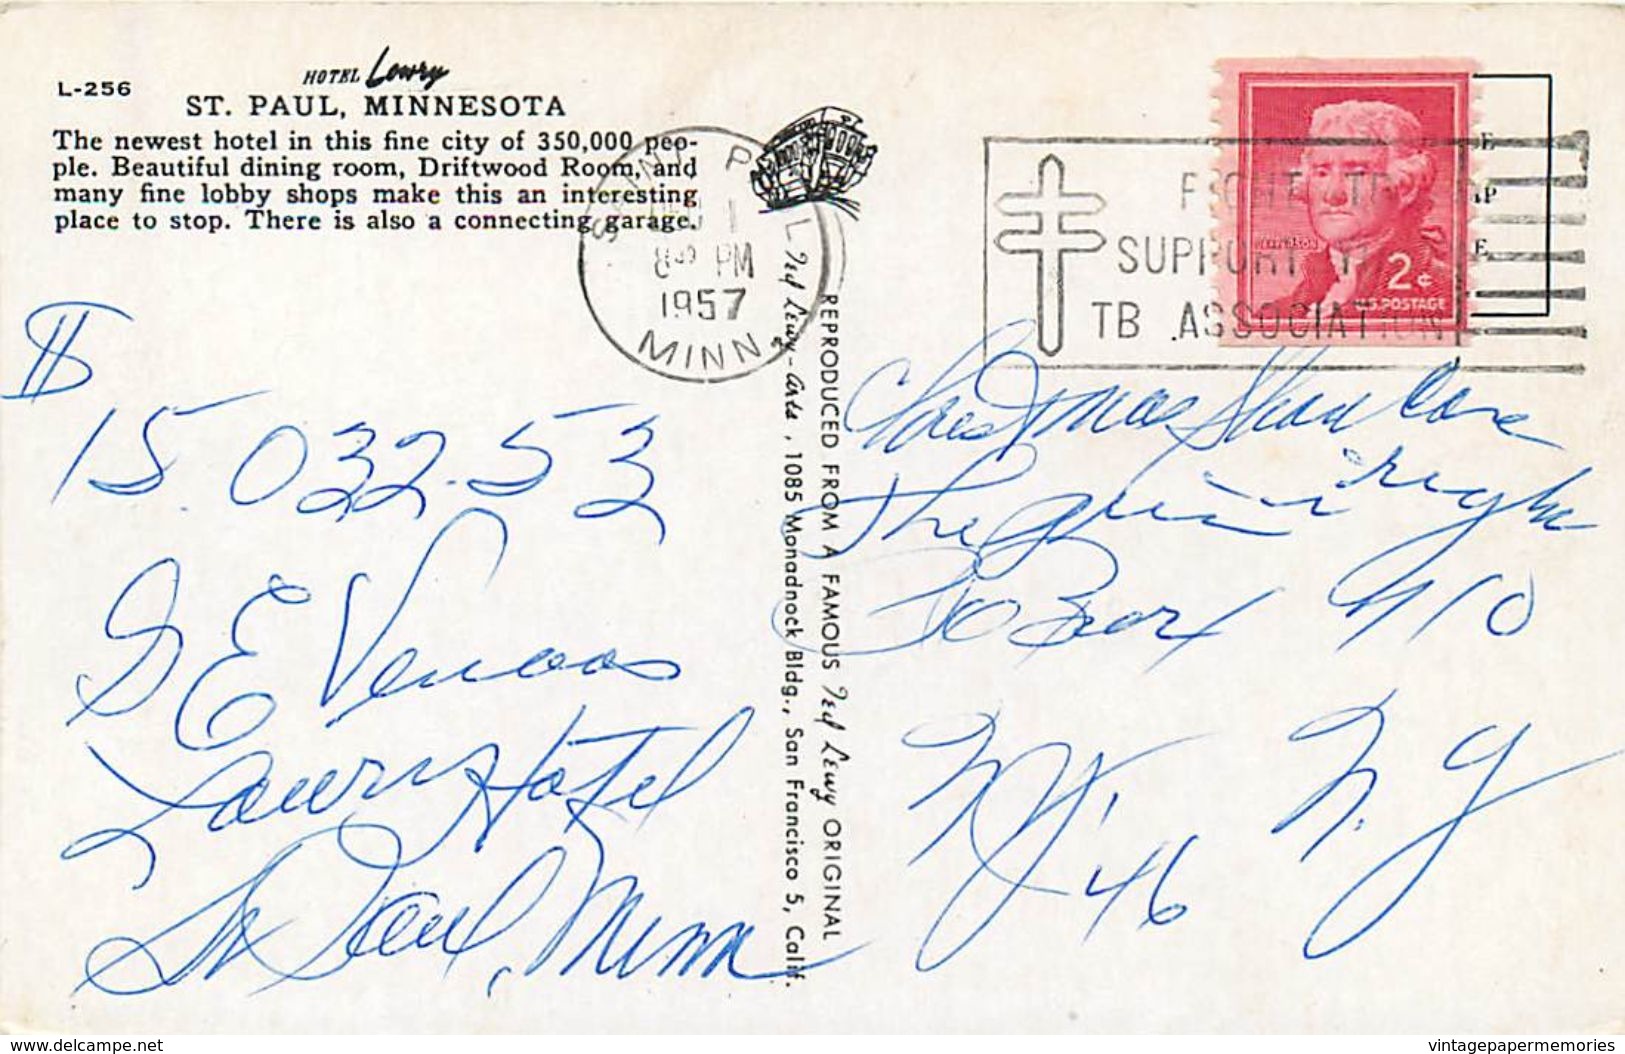 L-256
HOTEL Lowry
ST. PAUL, MINNESOTA
The newest hotel in this fine city of 350,000 peo-
ple. Beautiful dining room, Driftwood Room, and
many fine lobby shops make this an interesting
place to stop. There is also a connecting garage.
SAINT PAUL
1
8 PM
1957
MINN.
FIGHT TB
SUPPORT
TB ASSOCIATION
JEFFERSON
2¢
U.S. POSTAGE
REPRODUCED FROM A FAMOUS Ted Lewy ORIGINAL
Ted Lewy-Arts, 1085 Monadnock Bldg., San Francisco 5, Calif.
$
15.032.53
G E Venoas
Lowry Hotel
St Paul, Minn
Christmas Show Care
The
PO Box 910
NY 46 N.Y
delcampe.net
vintagepapermemories